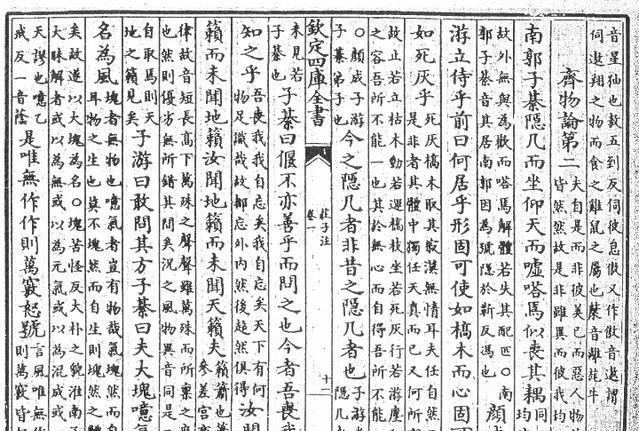 音星狌也敖五到反伺彼怠傲又作傲音遨謂
伺遨翔之物而食之雞鼠之屬也斄音離旄牛
齊物論第二
夫自是而非彼美已而惡人物
皆然然故是非雖異而彼我均
南郭子綦隠几而坐仰天而噓嗒焉似喪其耦
同
均
故外無與為歡而嗒焉解體若失其配匹○南
郭子綦音其居南郭因為號隠於靳反馮也
顔成
游立侍乎前曰何居乎形固可使如槁木而心固可
如死灰乎
死灰槁木取其寂漠無情耳夫任自然
是非者其體中獨任天真而已又何所
故止若立枯木動若運槁枝坐若死灰行若游塵
之容吾所不能一也其於無心而自得吾所不能
○顔成子游
子綦弟子也
今之隠几者非昔之隠几者也
隠几
子游
欽定四庫全書
莊子注
卷一
十二
未見若
子綦也
子綦曰偃不亦善乎而問之也今者吾喪我
知之乎
吾喪我我自忘矣我自忘矣天下有何
物足識哉故都忘外内然後超然俱得
汝聞
籟而未聞地籟汝聞地籟而未聞天籟夫
籟簫也簫
參差宮商
律故音短長高下萬殊之聲聲雖萬殊而所稟之度
也然則優劣無所錯其間矣況之風物異音同是
自取焉則天
地之籟見矣
子游曰敢問其方子綦曰夫大塊噫氣
名為風
塊者無物也噫氣者豈有物哉氣塊然而自
耳物之生也莫不塊然而自生則塊然之體
矣故遂以大塊為名○塊苦怪反大朴之貌淮南子
大昧解者或以為無或以為元氣或以為混成或
天謬也噫乙
戒反一音蔭
是唯無作作則萬竅怒號
言風唯無作
則萬竅皆